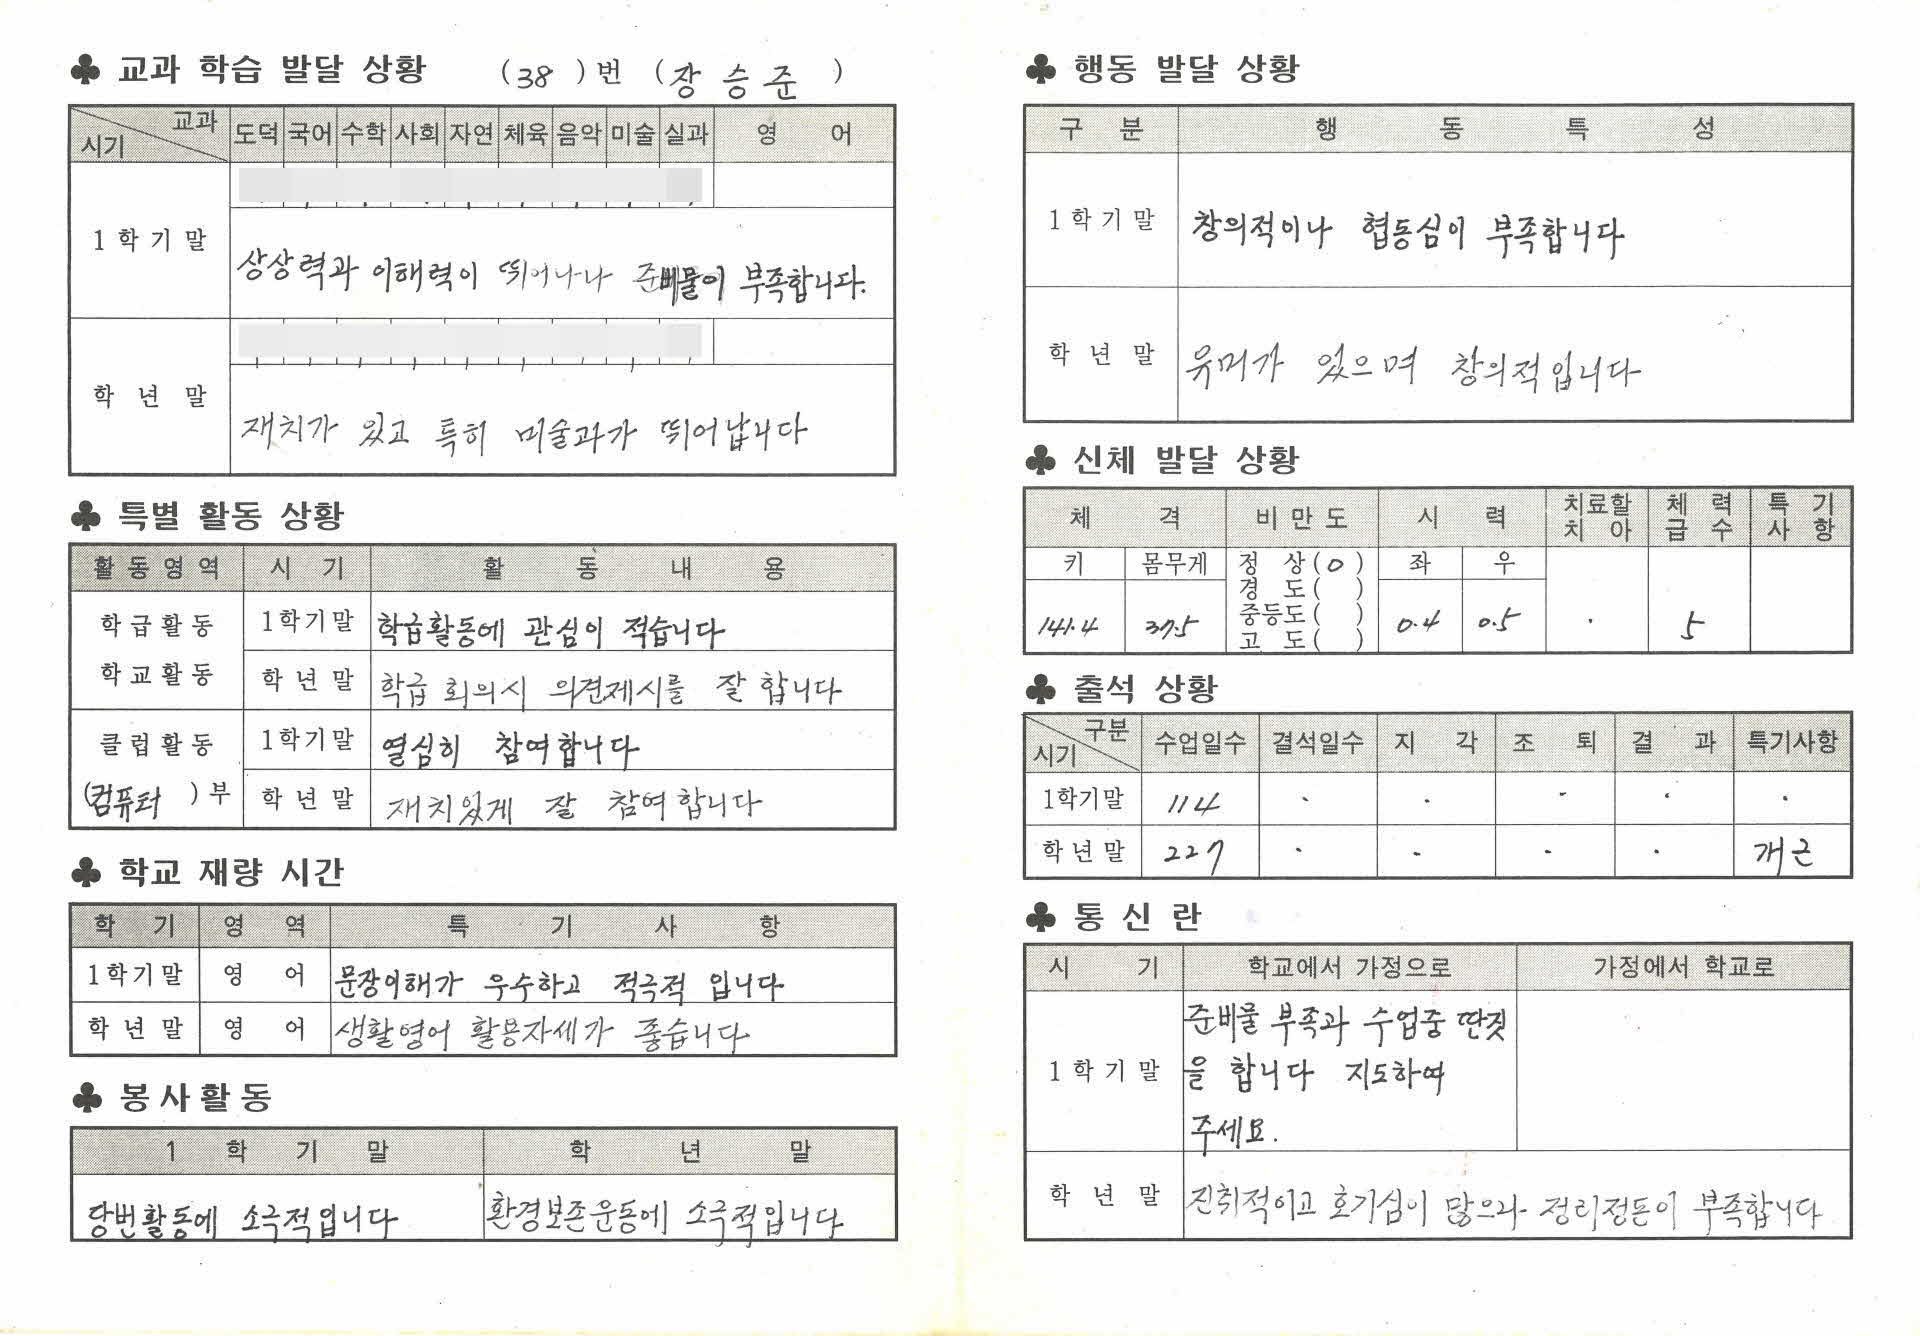 ♣ 교과 학습 발달 상황 (38)번 (장승준)
교과 시기 도덕 국어 수학 사회 자연 체육 음악 미술 실과 영어
1학기말
상상력과 이해력이 뛰어나나 준비물이 부족합니다.
학년말
재치가 있고 특히 미술과가 뛰어납니다
♣ 특별 활동 상황
활동영역 시기 활동내용
학급활동 1학기말 학급활동에 관심이 적습니다
학교활동 학년말 학급 회의시 의견제시를 잘 합니다
클럽활동 1학기말 열심히 참여합니다
(컴퓨터)부 학년말 재치있게 잘 참여합니다
♣ 학교 재량 시간
학기 영역 특기사항
1학기말 영어 문장이해가 우수하고 적극적 입니다
학년말 영어 생활영어 활용자세가 좋습니다
♣ 봉사활동
1학기말 학년말
당번활동에 소극적입니다 환경보존운동에 소극적입니다
♣ 행동 발달 상황
구분 행동특성
1학기말 창의적이나 협동심이 부족합니다
학년말 유머가 있으며 창의적입니다
♣ 신체 발달 상황
체격 비만도 시력 치료할 치아 체력 급수 특기 사항
키 몸무게 정상(O) 좌 우
경도( )
141.4 37.5 중등도( ) 0.4 0.5 · 5
고도( )
♣ 출석 상황
구분 시기 수업일수 결석일수 지각 조퇴 결과 특기사항
1학기말 114 · · · · ·
학년말 227 · · · · 개근
♣ 통신란
시기 학교에서 가정으로 가정에서 학교로
1학기말
준비물 부족과 수업중 딴짓
을 합니다 지도하여
주세요.
학년말 진취적이고 호기심이 많으나 정리정돈이 부족합니다